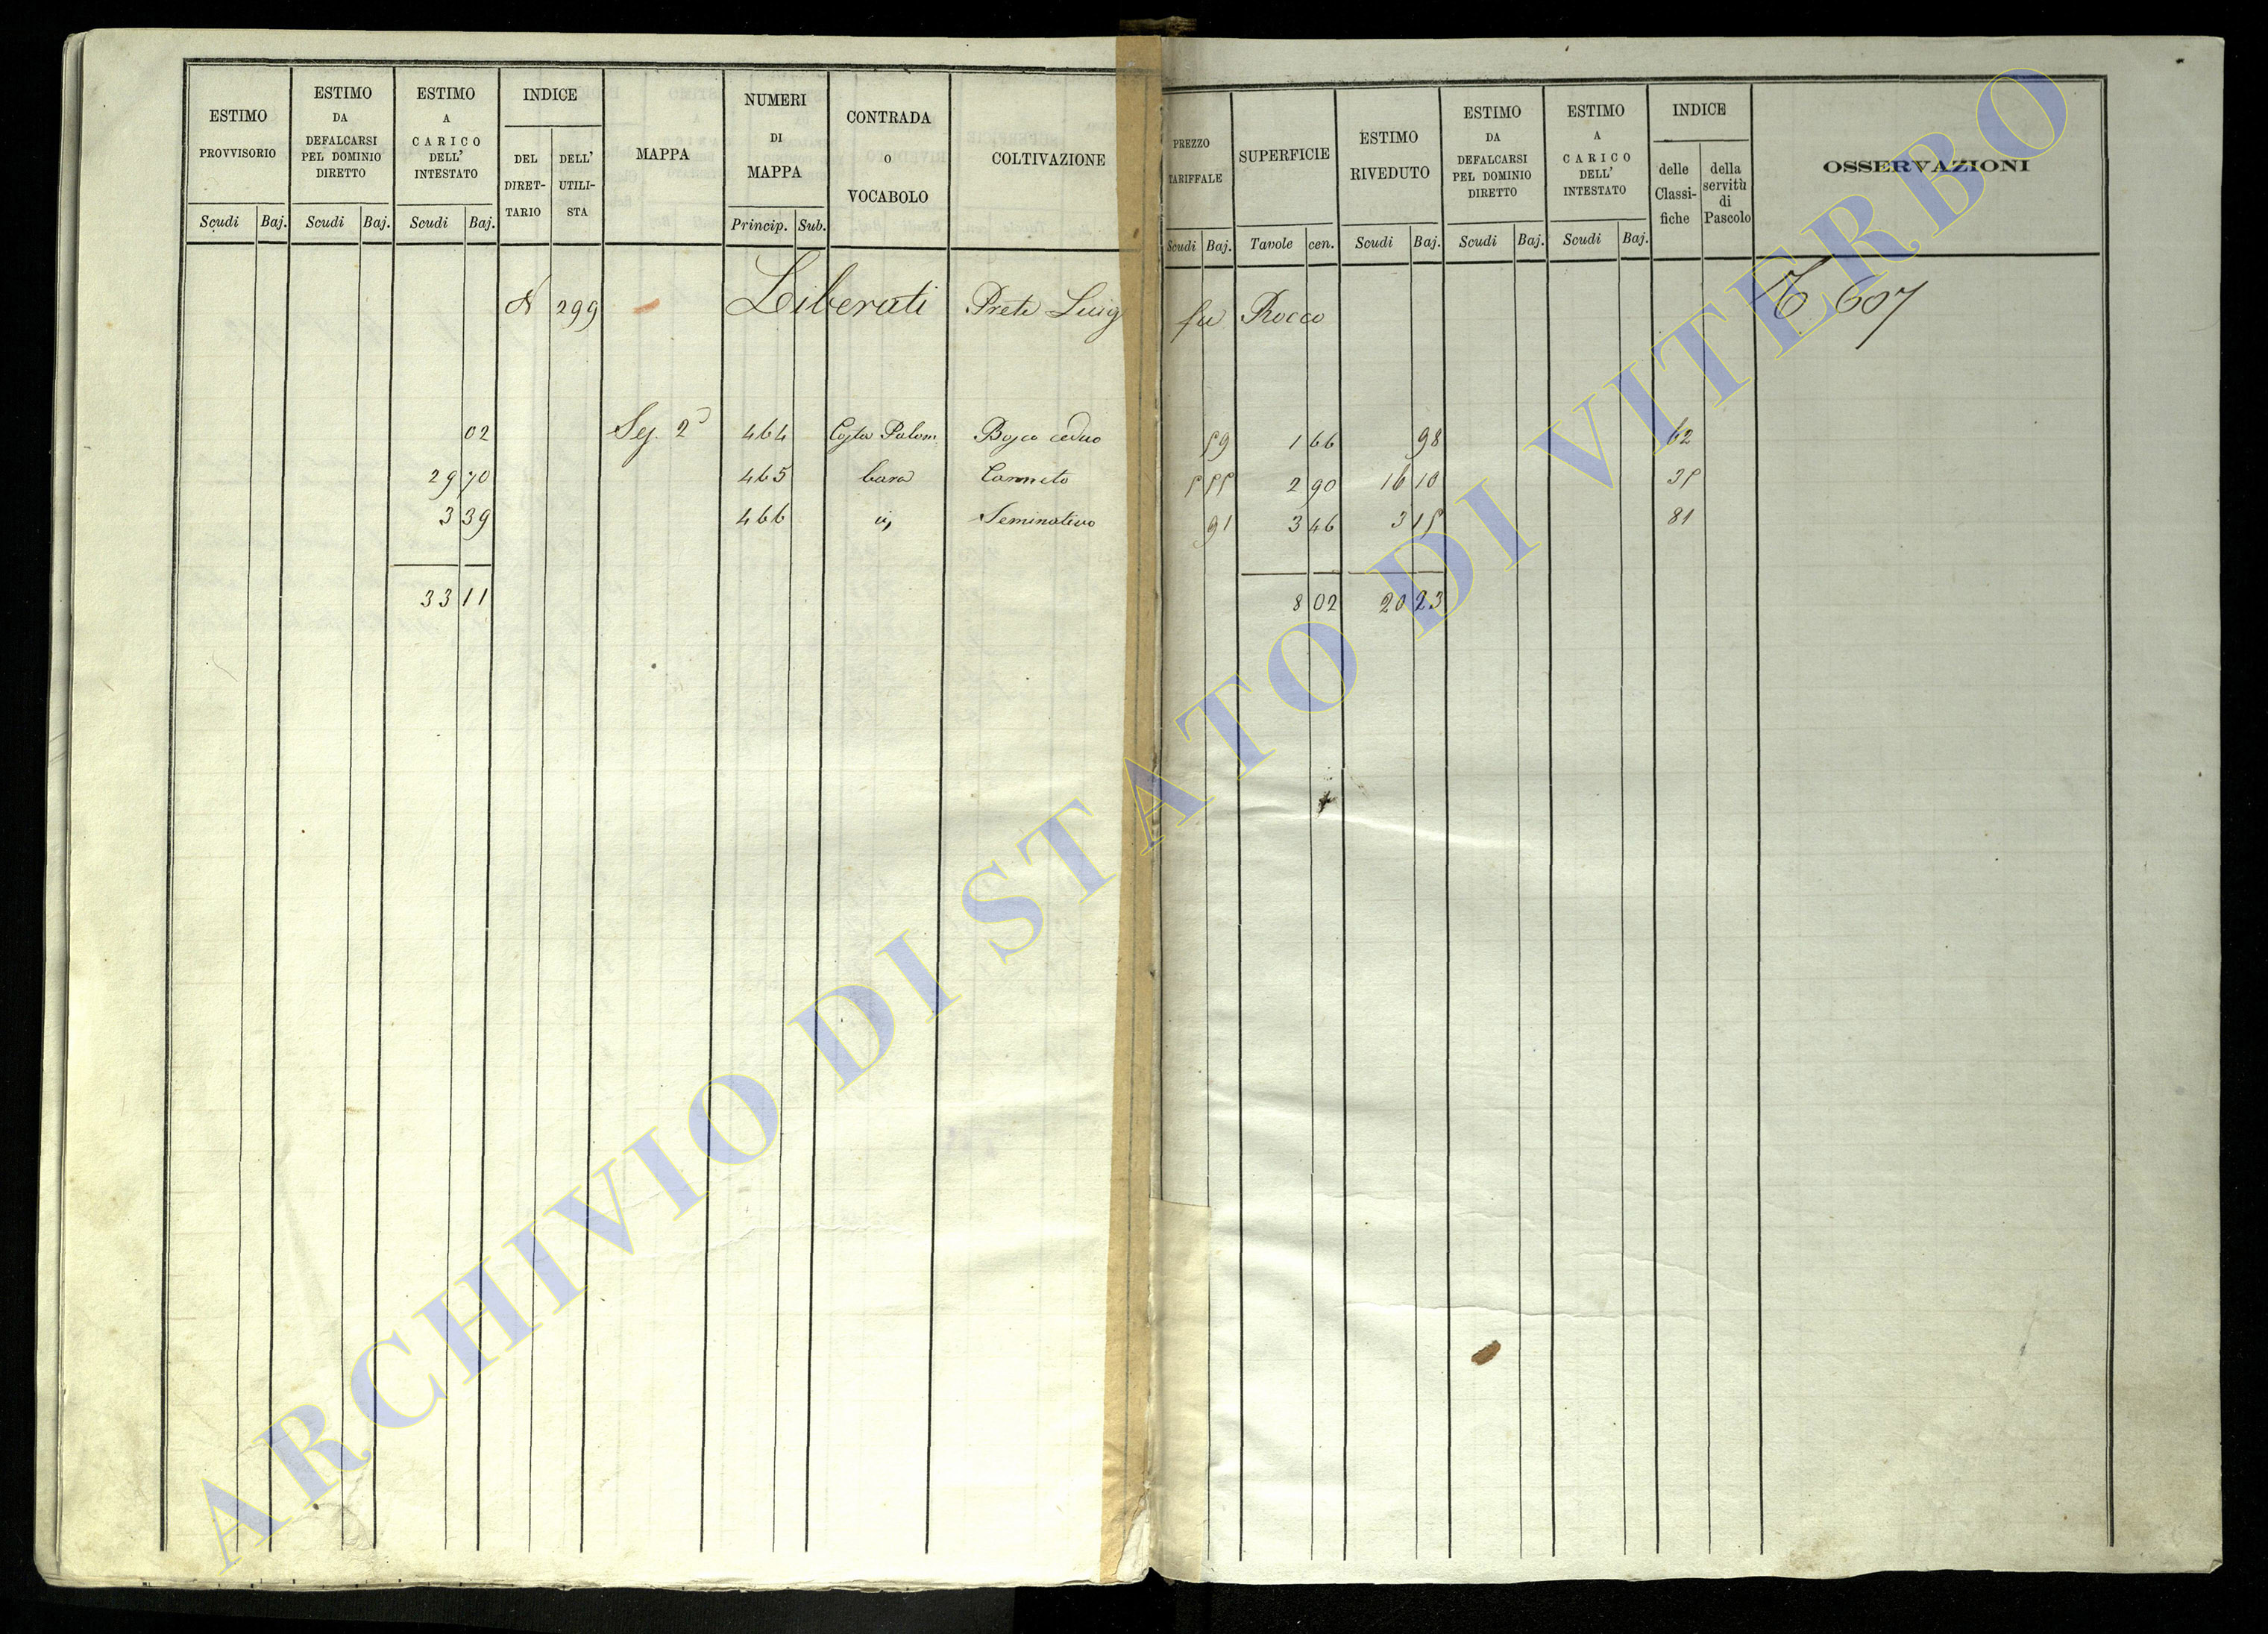 ESTIMO PROVVISORIO
Scudi Baj.
ESTIMO DA DEFALCARSI PEL DOMINIO DIRETTO
Scudi Baj.
ESTIMO A CARICO DELL' INTESTATO
Scudi Baj.
INDICE
DEL DIRET- TARIO
DELL' UTILI- STA
MAPPA
NUMERI DI MAPPA
Princip. Sub.
CONTRADA O VOCABOLO
COLTIVAZIONE
PREZZO TARIFFALE
Scudi Baj.
SUPERFICIE
Tavole cen.
ESTIMO RIVEDUTO
Scudi Baj.
ESTIMO DA DEFALCARSI PEL DOMINIO DIRETTO
Scudi Baj.
ESTIMO A CARICO DELL' INTESTATO
Scudi Baj.
INDICE
delle Classi- fiche
della servitù di Pascolo
OSSERVAZIONI
N 299 Liberati Prete Luigi fu Rocco 607
02 Sez. 2ª 464 Costa Palom Bosco ceduo 59 1 66 98 62
29 70 465 bara Canneto 5 55 2 90 16 10 35
3 39 466 Seminativo 91 3 46 3 15 81
33 11 8 02 20 23
ARCHIVIO DI STATO DI VITERBO